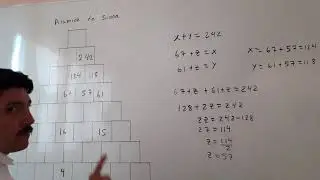 Piramide de Suma
242
124 118
67 57 61
16 15
4
x+y=242
67+z=x
61+z=y
x=67+57=114
y=61+57=118
67+z+61+z=242
128+2z=242
2z=242-128
2z=114
z=114/2
z=57